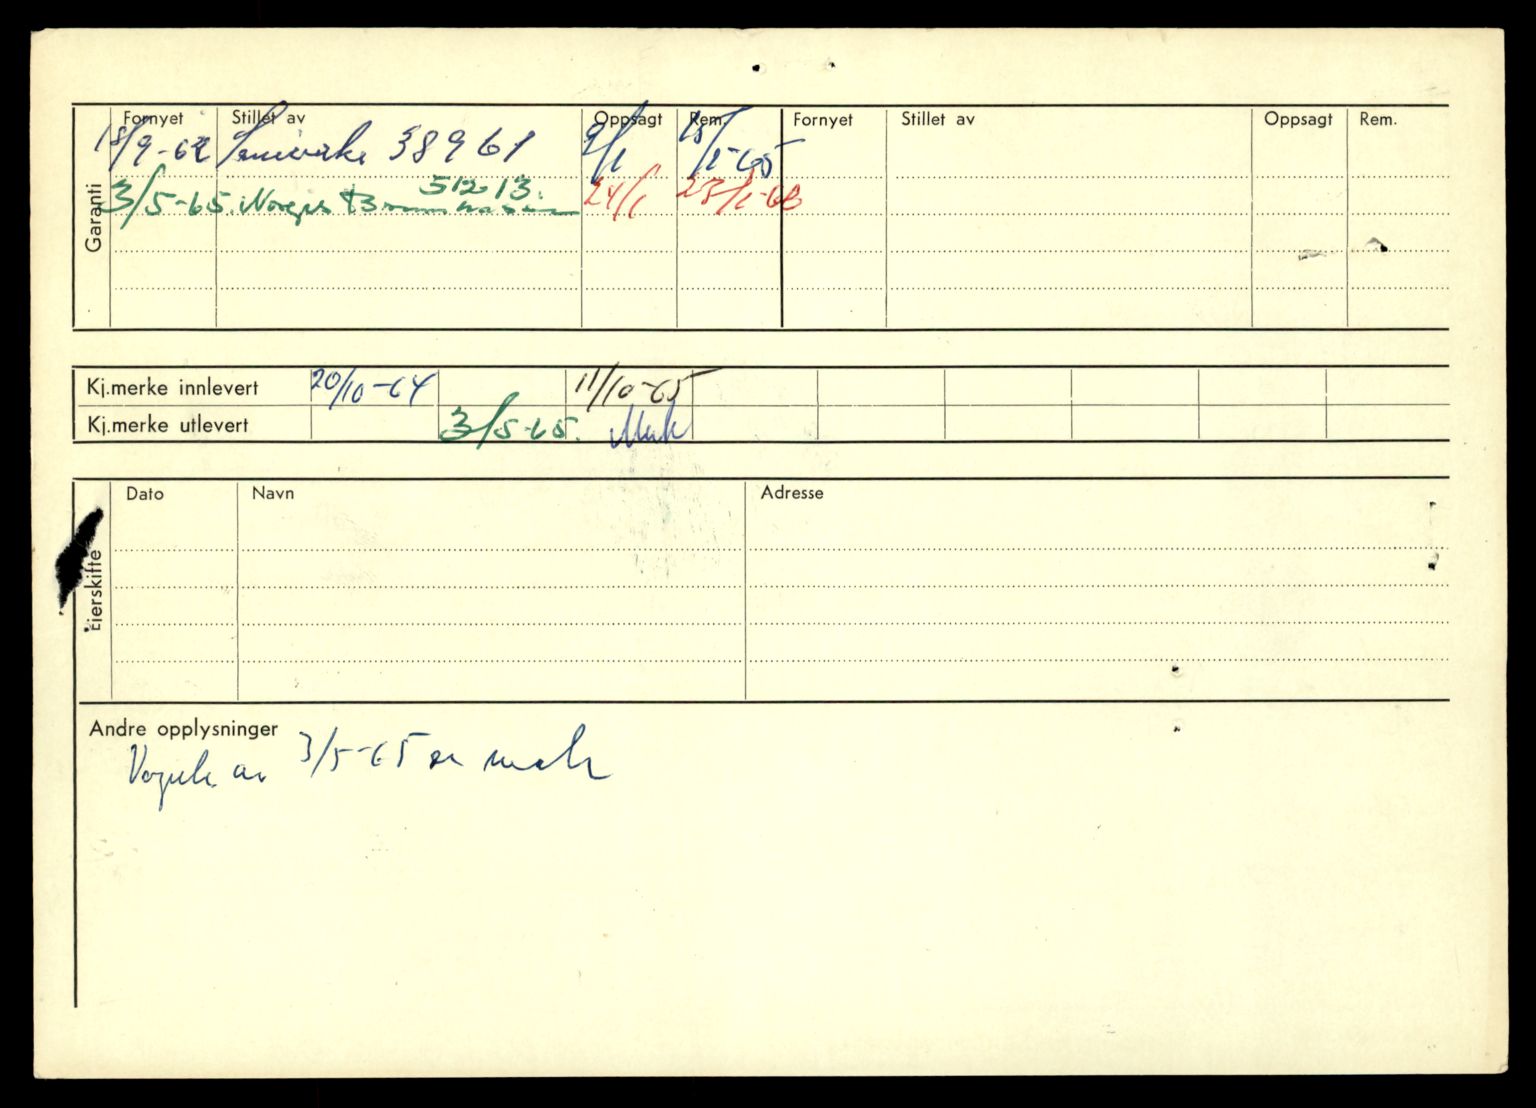 Fornyet Stillet av Oppsagt Rem. Fornyet Stillet av Oppsagt Rem.
18/9-62 Samvirke 38961 9/1 15/1-65
51213.
3/5-65. Norges Brannkasse 24/1 23/1-68
Garanti
Kj.merke innlevert 20/10-64 11/10-65
Kj.merke utlevert 3/5-65.
Dato Navn Adresse
Eierskifte
Andre opplysninger
3/5-65